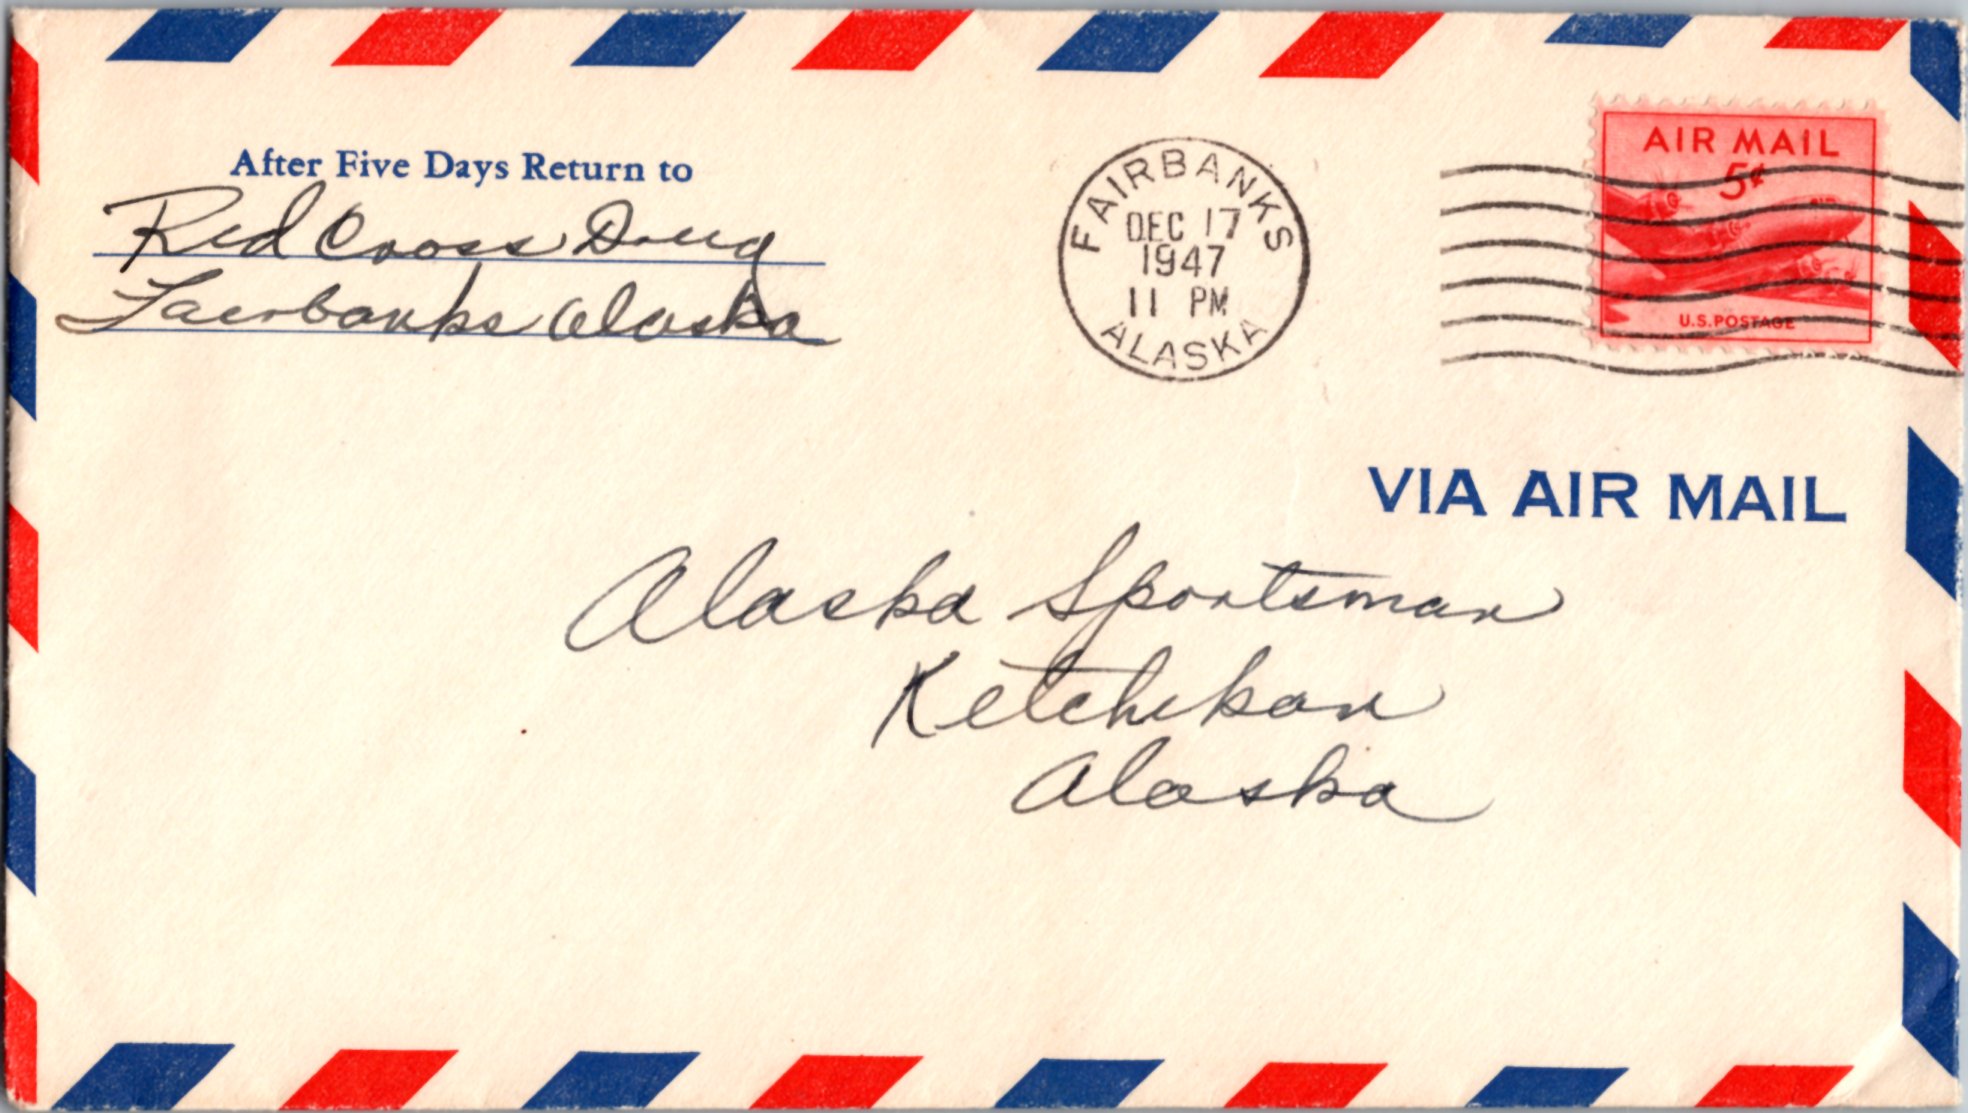 After Five Days Return to
Red Cross Drug
Fairbanks Alaska
FAIRBANKS
DEC 17
1947
11 PM
ALASKA
AIR MAIL
5¢
U.S. POSTAGE
VIA AIR MAIL
Alaska Sportsman
Ketchikan
Alaska